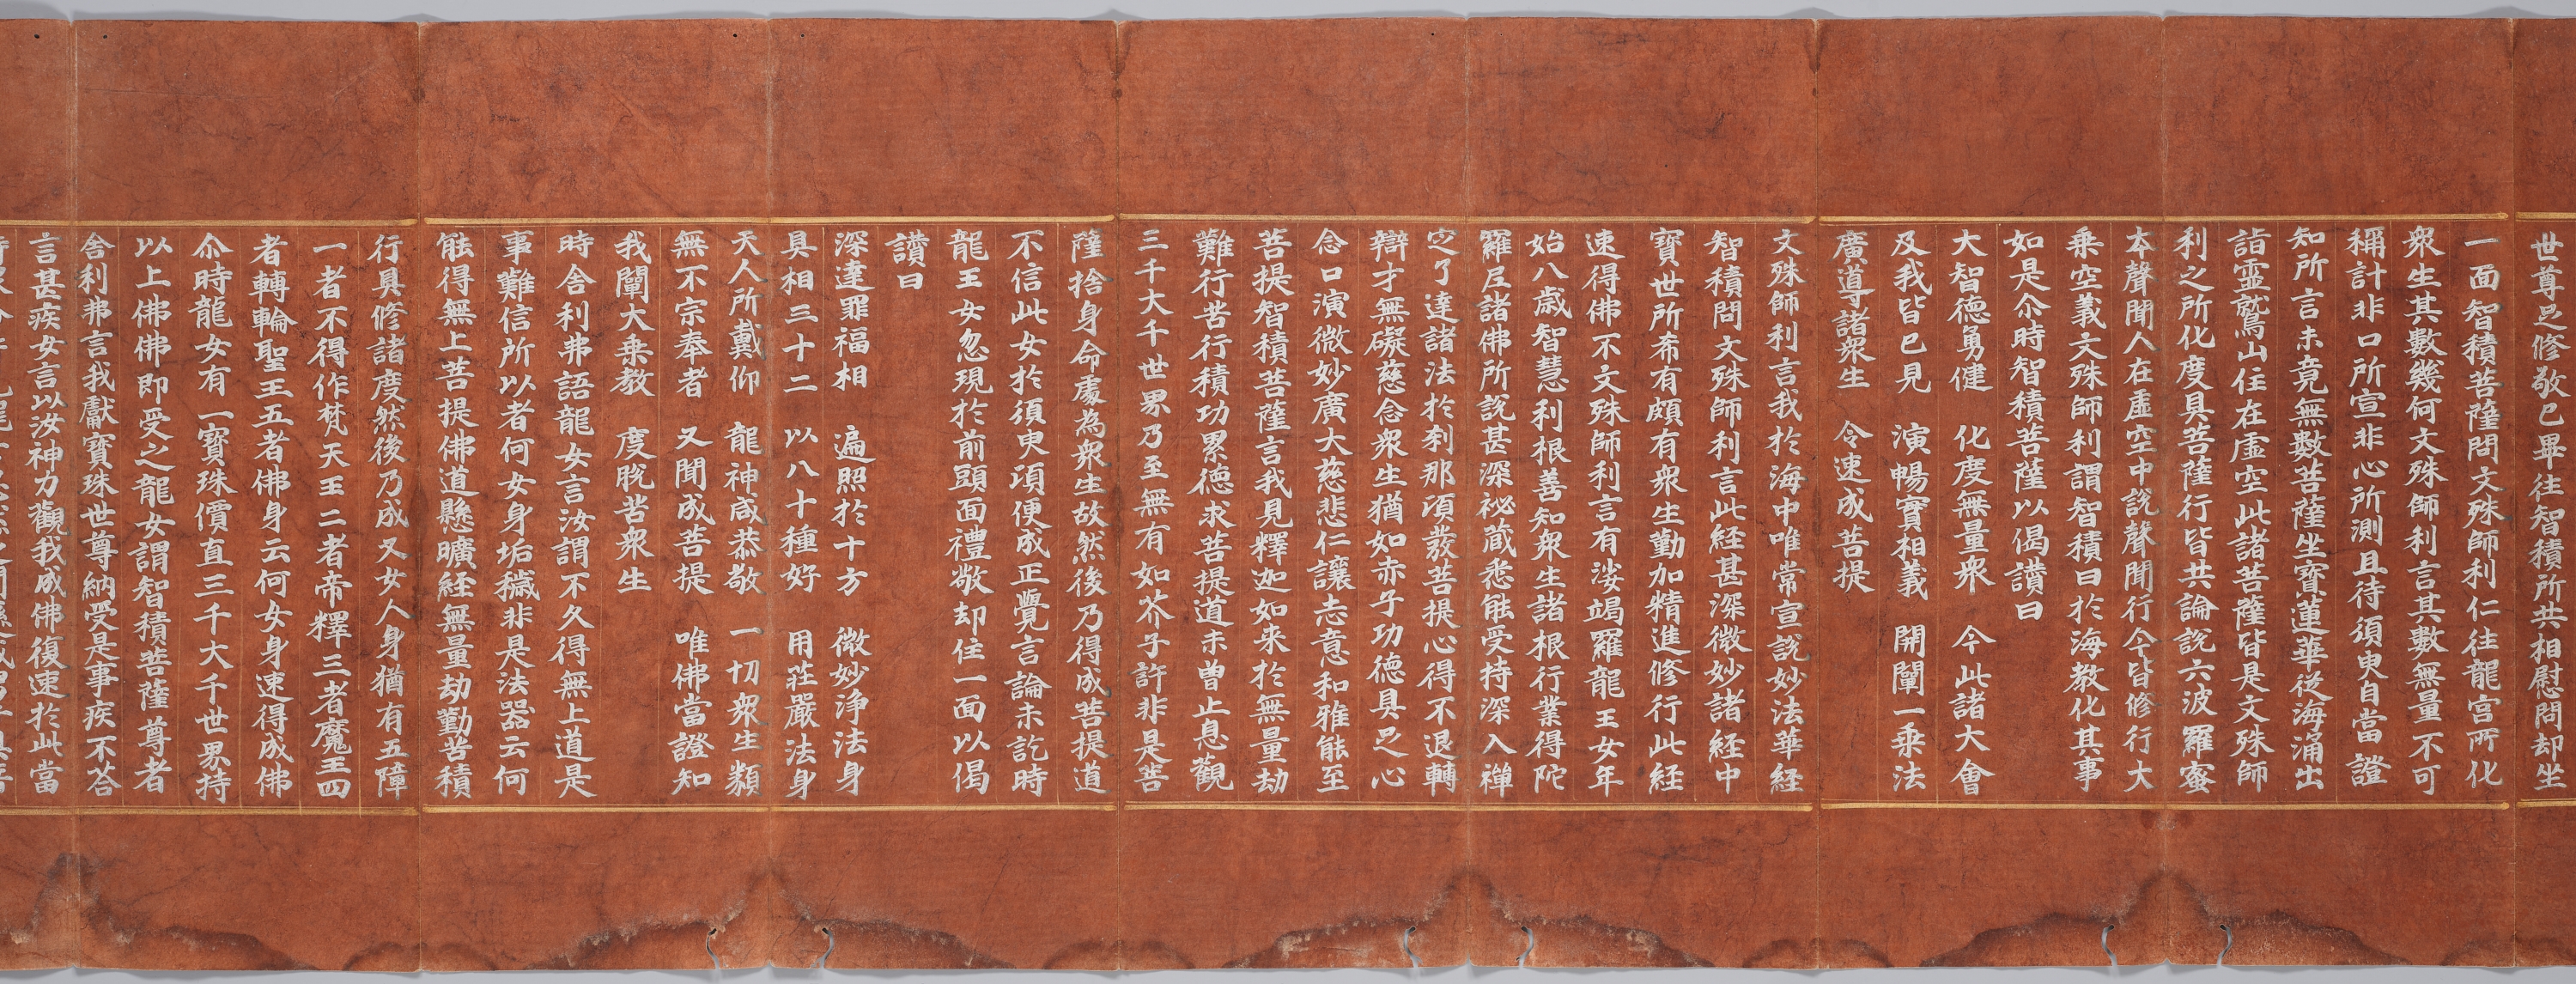 世尊足修敬已畢往智積所共相慰問却坐
一面智積菩薩問文殊師利仁往龍宮所化
衆生其數幾何文殊師利言其數無量不可
稱計非口所宣非心所測且待須臾自當證
知所言未竟無數菩薩坐寳蓮華從海涌出
詣靈鷲山住在虛空此諸菩薩皆是文殊師
利之所化度具菩薩行皆共論說六波羅蜜
本聲聞人在虛空中說聲聞行今皆修行大
乗空義文殊師利謂智積曰於海教化其事
如是尒時智積菩薩以偈讃曰
大智德勇健　化度無量衆　今此諸大會
及我皆已見　演暢實相義　開闡一乗法
廣導諸衆生　令速成菩提
文殊師利言我於海中唯常宣說妙法華経
智積問文殊師利言此経甚深微妙諸経中
寳世所希有頗有衆生勤加精進修行此経
速得佛不文殊師利言有娑竭羅龍王女年
始八歳智慧利根善知衆生諸根行業得陀
羅尼諸佛所說甚深祕蔵悉能受持深入禪
㝎了達諸法於刹那頃發菩提心得不退轉
辯才無礙慈念衆生猶如赤子功德具足心
念口演微妙廣大慈悲仁讓志意和雅能至
菩提智積菩薩言我見釋迦如来於無量劫
難行苦行積功累德求菩提道未曽止息觀
三千大千世界乃至無有如芥子許非是菩
薩捨身命處為衆生故然後乃得成菩提道
不信此女於須臾項便成正覺言論未訖時
龍王女忽現於前頭面禮敬却住一面以偈
讃曰
深達罪福相　遍照於十方　微妙浄法身
具相三十二　以八十種好　用莊嚴法身
天人所戴仰　龍神咸恭敬　一切衆生類
無不宗奉者　又聞成菩提　唯佛當證知
我闡大乗教　度脫苦衆生
時舎利弗語龍女言汝謂不久得無上道是
事難信所以者何女身垢穢非是法器云何
能得無上菩提佛道懸曠経無量劫勤苦積
行具修諸度然後乃成又女人身猶有五障
一者不得作梵天王二者帝釋三者魔王四
者轉輪聖王五者佛身云何女身速得成佛
尒時龍女有一寳珠價直三千大千世界持
以上佛佛即受之龍女謂智積菩薩尊者
舎利弗言我獻寳珠世尊納受是事疾不荅
言甚疾女言以汝神力觀我成佛復速於此當